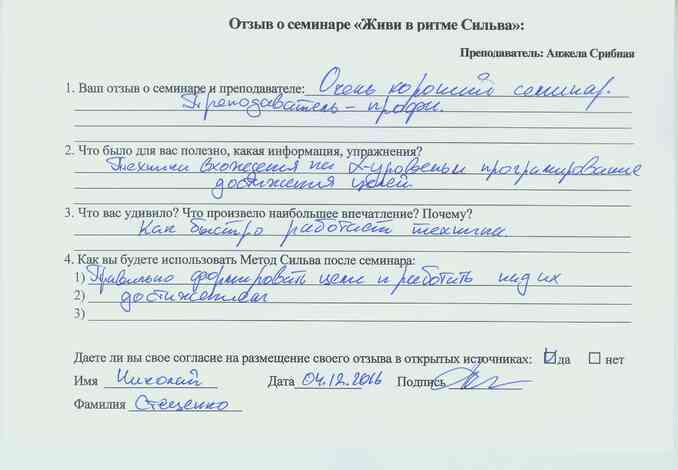 Отзыв о семинаре «Живи в ритме Сильва»:
Преподаватель: Анжела Срибная
1. Ваш отзыв о семинаре и преподавателе: Очень хороший семинар.
Преподаватель – профи.
2. Что было для вас полезно, какая информация, упражнения?
Техники вхождения на α-уровень и програмирование
достижения целей
3. Что вас удивило? Что произвело наибольшее впечатление? Почему?
Как быстро работает техника.
4. Как вы будете использовать Метод Сильва после семинара:
1) Правильно формировать цели и работать над их
2) достижением
3)
Даете ли вы свое согласие на размещение своего отзыва в открытых источниках: да нет
Имя Николай Дата 04.12.2016 Подпись
Фамилия Стеценко